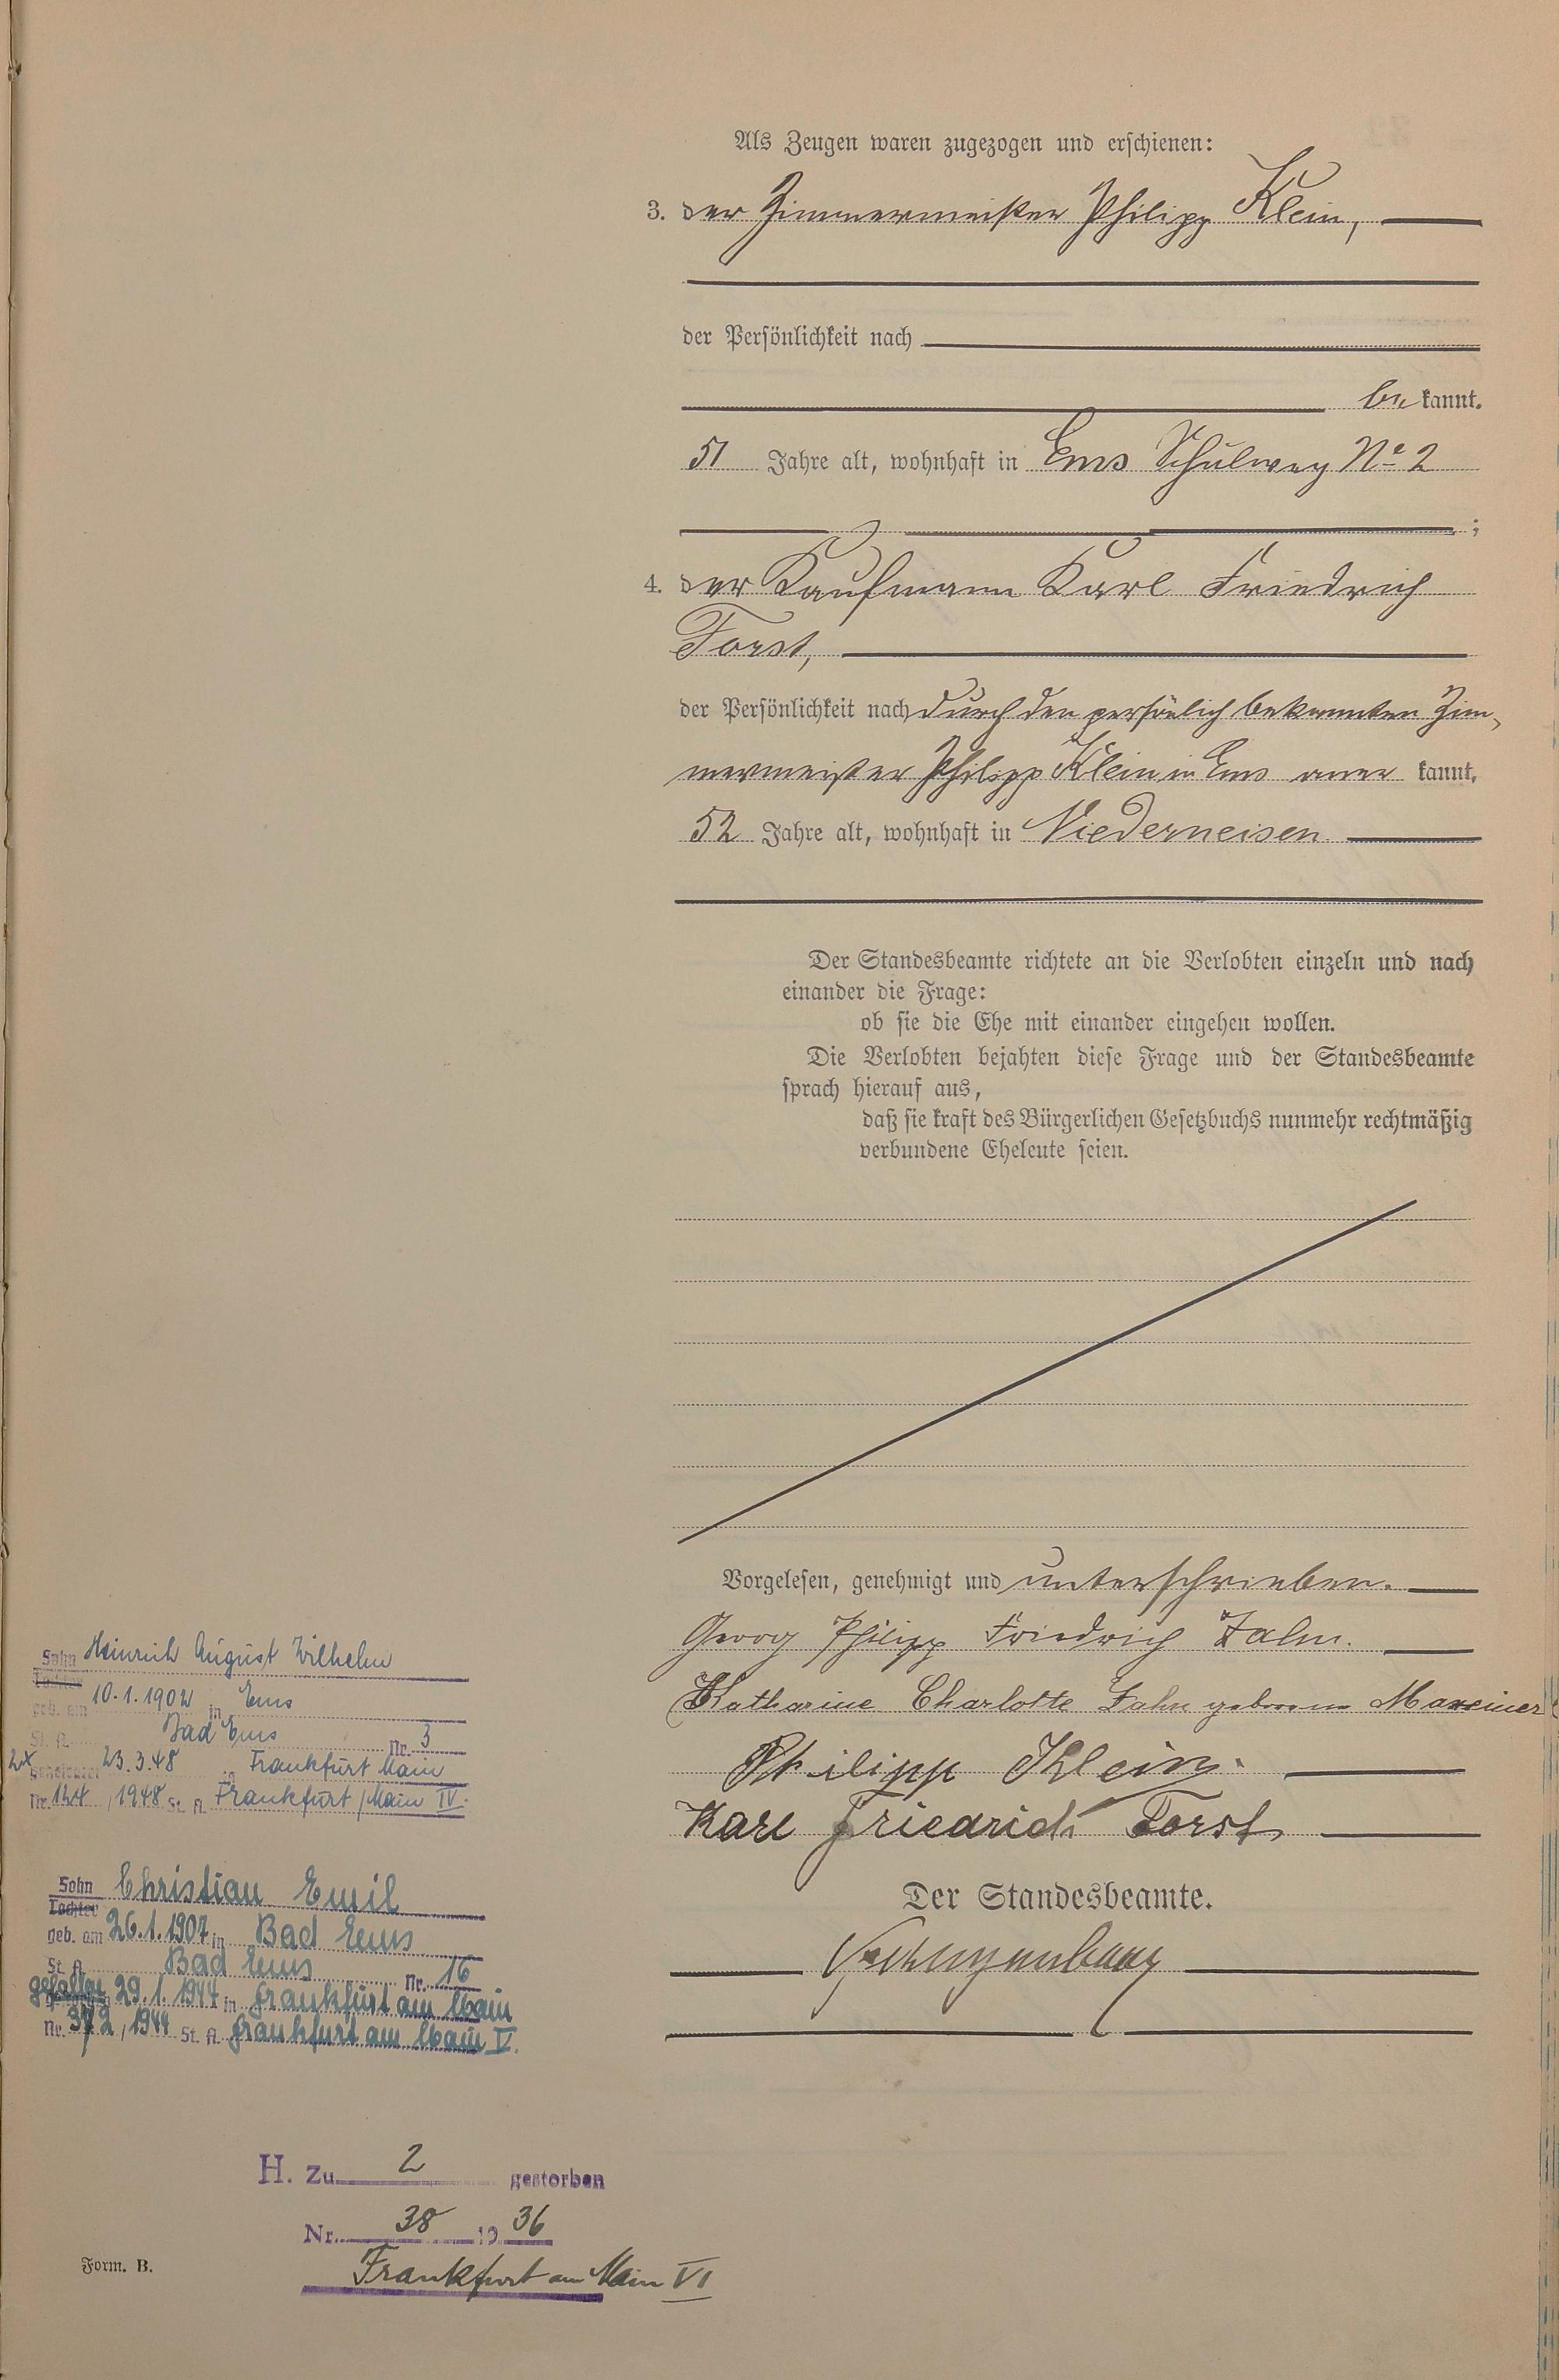 Als Zeugen waren zugezogen und erschienen:
3. der Zimmermeister Philipp Klein,
der Persönlichkeit nach
be kannt.
51 Jahre alt, wohnhaft in Ems Schulweg No 2
;
4. der Kaufmann Karl Friedrich
Forst,
der Persönlichkeit nach durch den persönlich bekannten Zim-
mermeister Philipp Klein in Ems aner kannt.
52 Jahre alt, wohnhaft in Niederneisen.
Der Standesbeamte richtete an die Verlobten einzeln und nach
einander die Frage:
ob sie die Ehe mit einander eingehen wollen.
Die Verlobten bejahten diese Frage und der Standesbeamte
sprach hierauf aus,
daß sie kraft des Bürgerlichen Gesetzbuchs nunmehr rechtmäßig
verbundene Eheleute seien.
Vorgelesen, genehmigt und unterschrieben.
Georg Philipp Friedrich Zahn.
Katharine Charlotte Zahn geborene Maxeiner
Philipp Klein.
Karl Friedrich Forst
Der Standesbeamte.
Sohn Heinrich August Wilhelm
Tochter
geb. am 10.1.1902 in Ems
St. A. Bad Ems Nr. 3
2x geheiratet 23.3.48 in Frankfurt Main
Nr. 124 /1948 St. A. Frankfurt/Main IV.
Sohn Christian Emil
Tochter
geb. am 26.1.1907 in Bad Ems
St. A. Bad Ems Nr. 16
gefallen 29.1.1944 in Frankfurt am Main
Nr. 372/1944 St. A. Frankfurt am Main V.
H. Zu 2 gestorben
Nr. 38 19 36
Frankfurt am Main VI
Form. B.